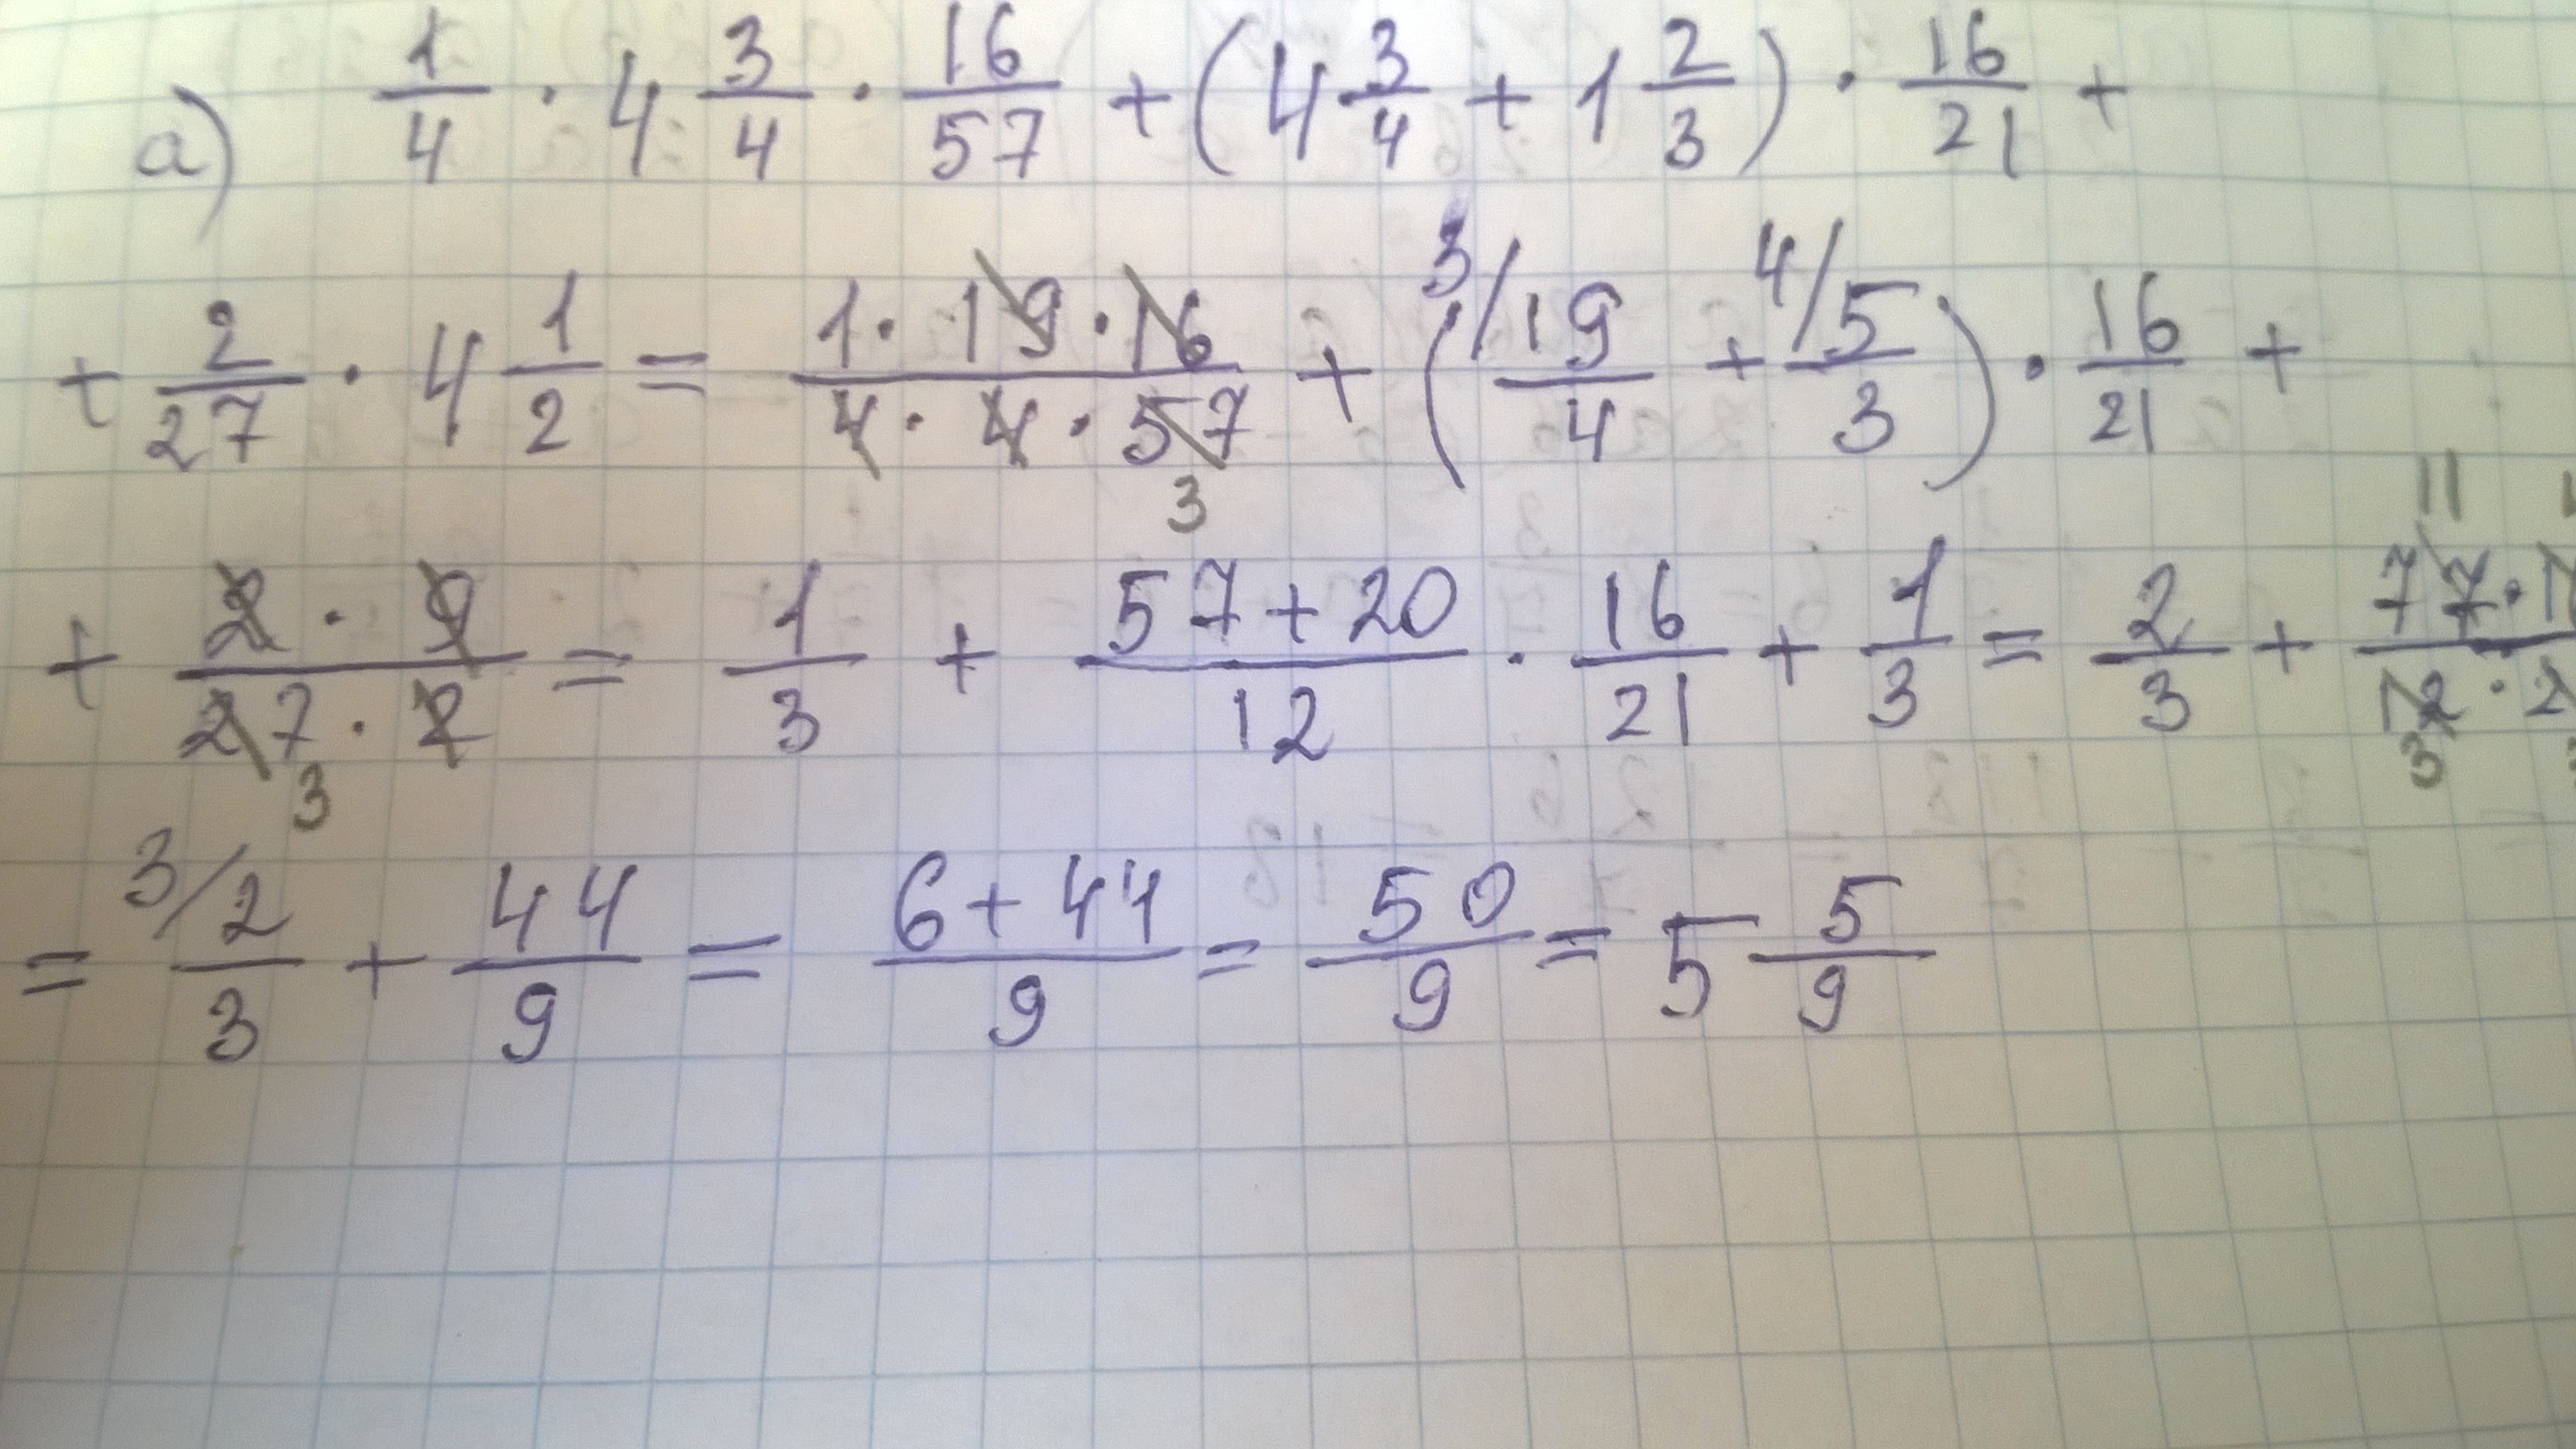 а) 1/4 · 4 3/4 · 16/57 + (4 3/4 + 1 2/3) · 16/21 +
+ 2/27 · 4 1/2 = 1·19·16/4·4·57 3 + (3/ 19/4 + 4/ 5/3) · 16/21 +
+ 2·9/27·2 3 = 1/3 + 57+20/12 · 16/21 + 1/3 = 2/3 + 11 77·1/12·2 3
= 3/ 2/3 + 44/9 = 6+44/9 = 50/9 = 5 5/9